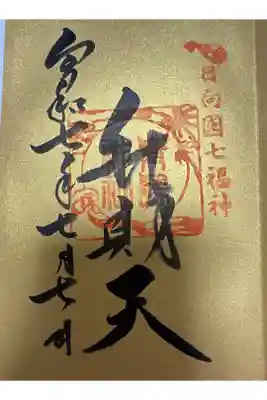 日向国七福神
弁財天
令和七年七月七日